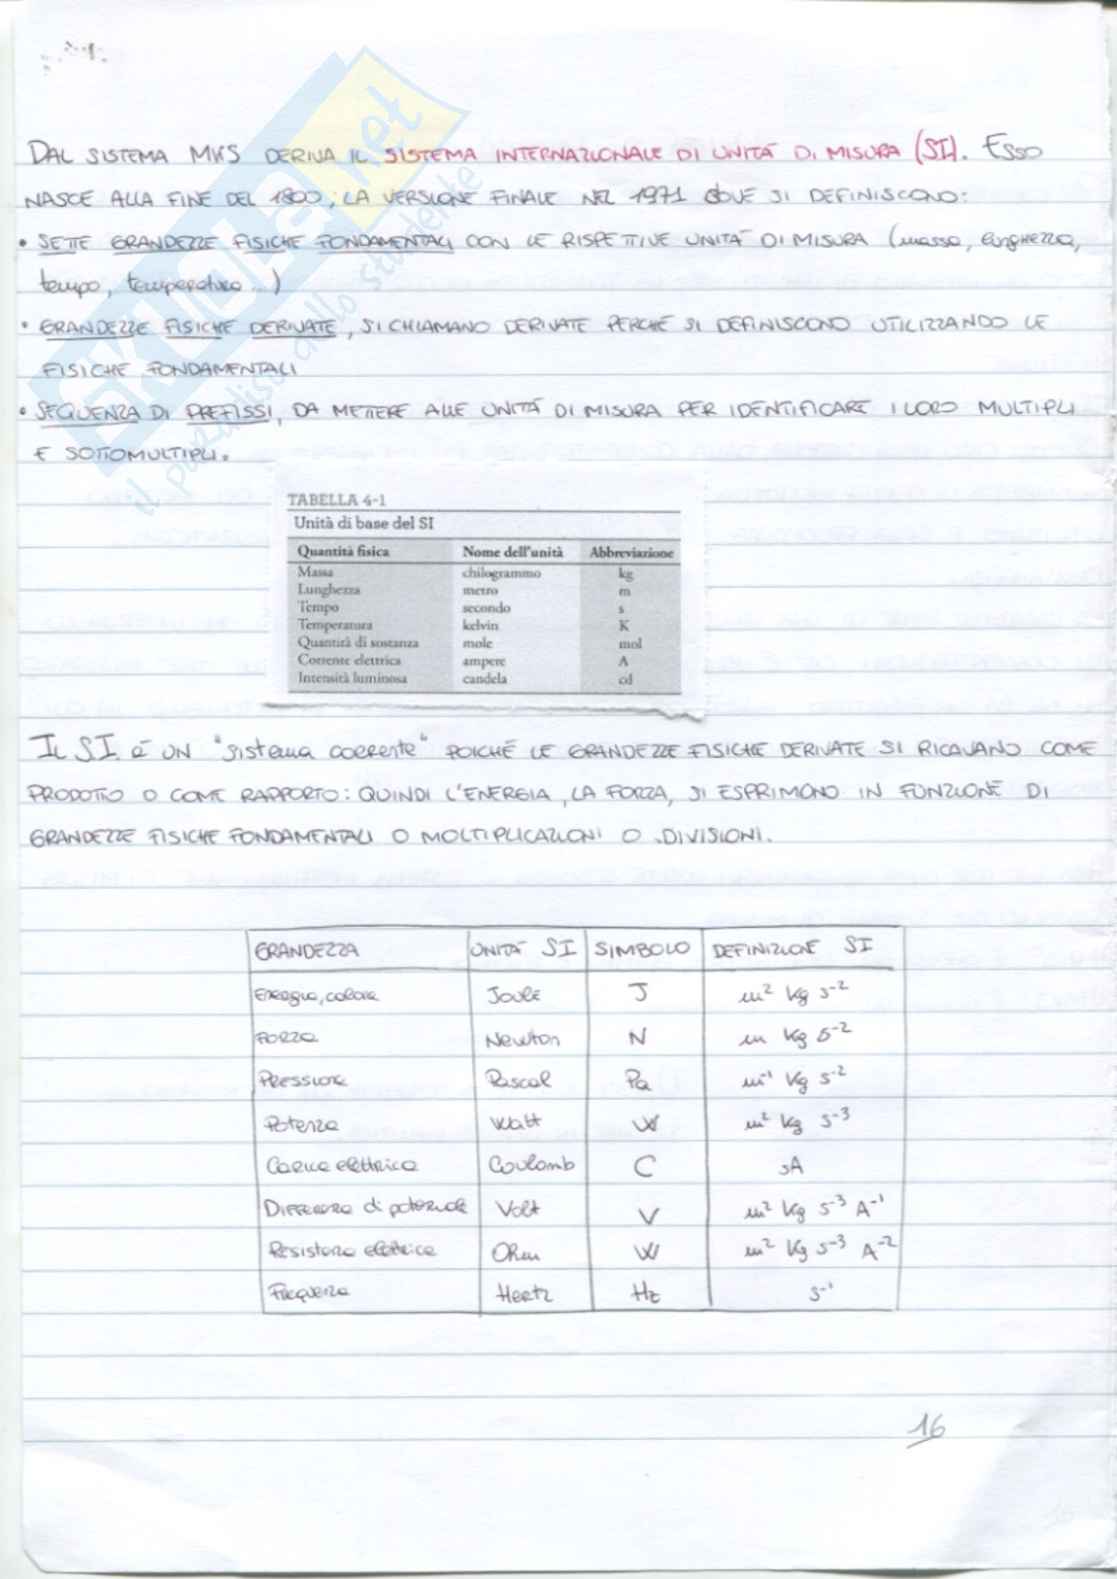 SKUOLA.net
il paradiso dello studente
DAL SISTEMA MKS DERIVA IL SISTEMA INTERNAZIONALE DI UNITÀ DI MISURA (SI). ESSO
NASCE ALLA FINE DEL 1800, LA VERSIONE FINALE NEL 1971 DOVE SI DEFINISCONO:
• SETTE GRANDEZZE FISICHE FONDAMENTALI CON LE RISPETTIVE UNITÀ DI MISURA (massa, lunghezza,
tempo, temperatura...)
• GRANDEZZE FISICHE DERIVATE, SI CHIAMANO DERIVATE PERCHÉ SI DEFINISCONO UTILIZZANDO LE
FISICHE FONDAMENTALI
• SEQUENZA DI PREFISSI, DA METTERE ALLE UNITÀ DI MISURA PER IDENTIFICARE I LORO MULTIPLI
E SOTTOMULTIPLI.
TABELLA 4-1
Unità di base del SI
Quantità fisica Nome dell'unità Abbreviazione
Massa chilogrammo kg
Lunghezza metro m
Tempo secondo s
Temperatura kelvin K
Quantità di sostanza mole mol
Corrente elettrica ampere A
Intensità luminosa candela cd
IL SI È UN "sistema coerente" POICHÉ LE GRANDEZZE FISICHE DERIVATE SI RICAVANO COME
PRODOTTO O COME RAPPORTO: QUINDI L'ENERGIA, LA FORZA, SI ESPRIMONO IN FUNZIONE DI
GRANDEZZE FISICHE FONDAMENTALI O MOLTIPLICAZIONI O DIVISIONI.
GRANDEZZA UNITÀ SI SIMBOLO DEFINIZIONE SI
Energia, calore Joule J m² kg s⁻²
Forza Newton N m kg s⁻²
Pressione Pascal Pa m⁻¹ kg s⁻²
Potenza Watt W m² kg s⁻³
Carica elettrica Coulomb C sA
Differenza di potenziale Volt V m² kg s⁻³ A⁻¹
Resistenza elettrica Ohm W m² kg s⁻³ A⁻²
Frequenza Hertz Hz s⁻¹
16